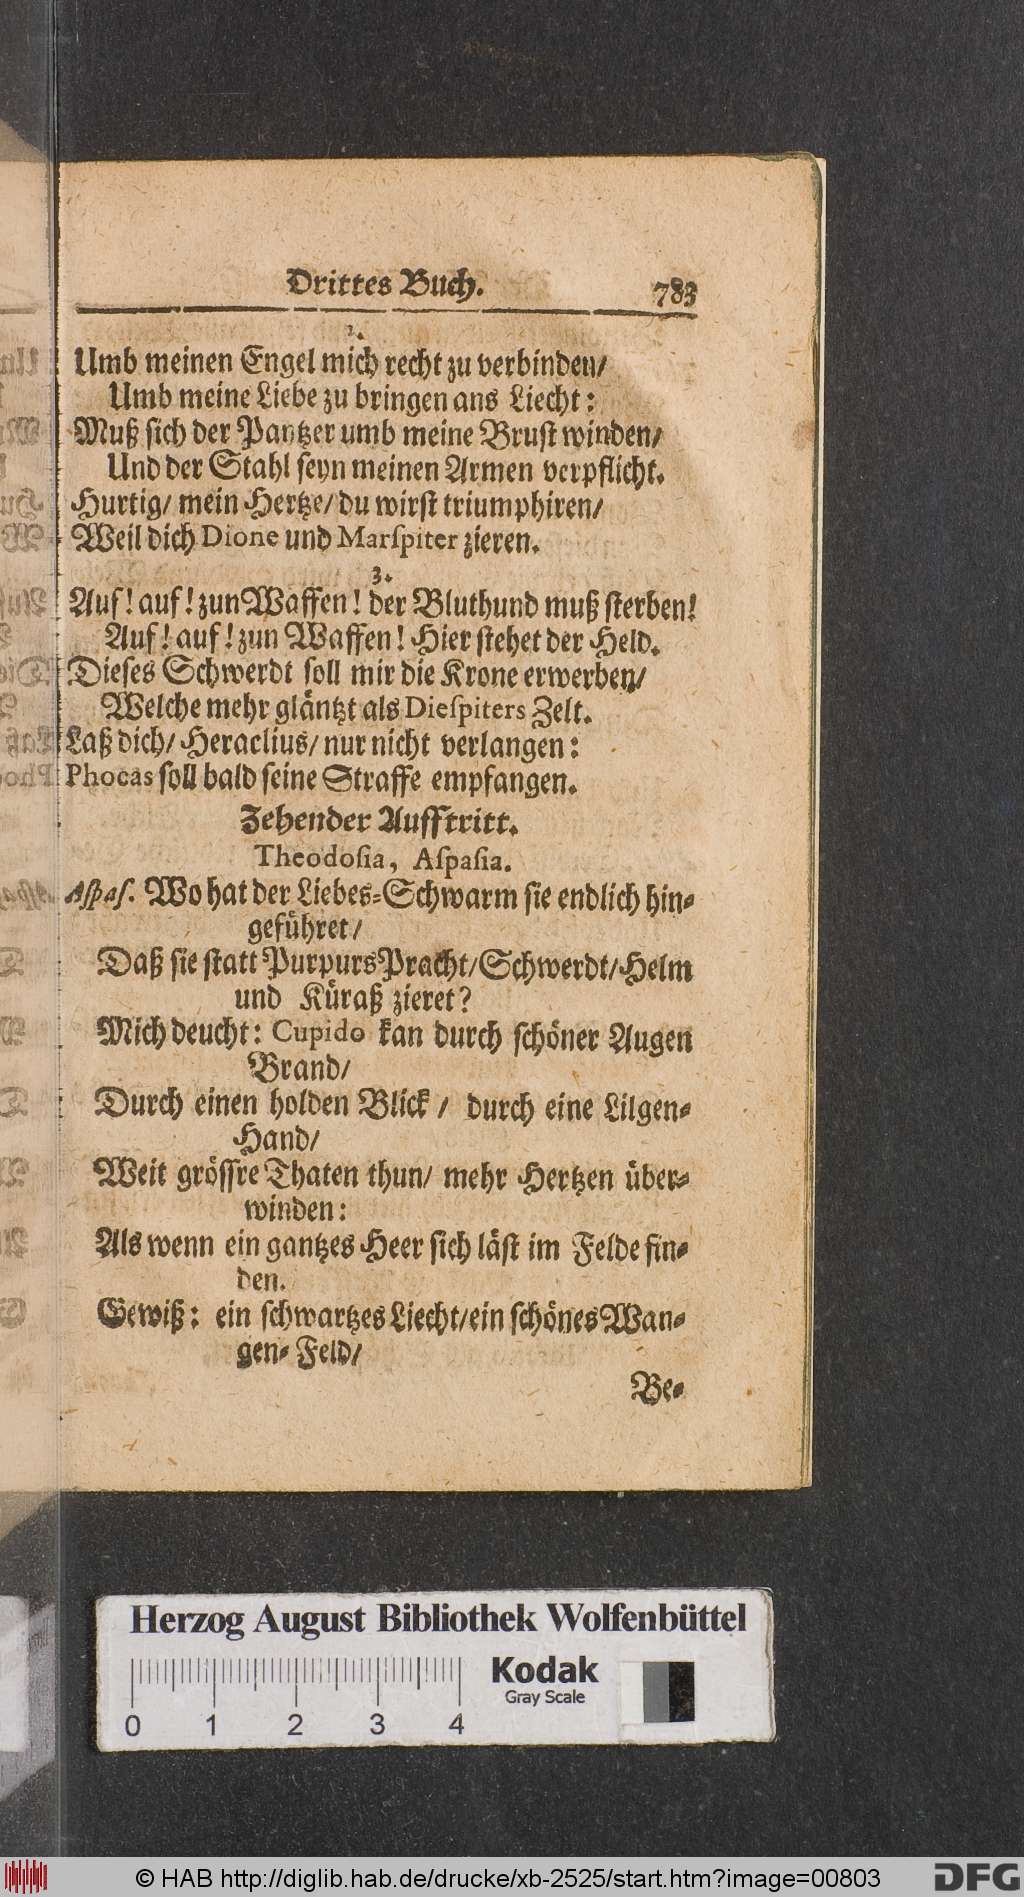 Drittes Buch. 783
2.
Umb meinen Engel mich recht zu verbinden/
Umb meine Liebe zu bringen ans Liecht:
Muß sich der Pantzer umb meine Brust winden/
Und der Stahl seyn meinen Armen verpflicht.
Hurtig/ mein Hertze/ du wirst triumphiren/
Weil dich Dione und Marſpiter zieren.
3.
Auf! auf! zun Waffen! der Bluthund muß sterben!
Auf! auf! zun Waffen! Hier stehet der Held.
Dieses Schwerdt soll mir die Krone erwerben/
Welche mehr gläntzt als Dieſpiters Zelt.
Laß dich/ Heraclius/ nur nicht verlangen:
Phocas soll bald seine Straffe empfangen.
Zehender Aufftritt.
Theodoſia, Aſpaſia.
Aſpaſ. Wo hat der Liebes-Schwarm sie endlich hin-
geführet/
Daß sie statt Purpurs Pracht/ Schwerdt/ Helm
und Küraß zieret?
Mich deucht: Cupido kan durch schöner Augen
Brand/
Durch einen holden Blick/ durch eine Lilgen-
Hand/
Weit grössre Thaten thun/ mehr Hertzen über-
winden:
Als wenn ein gantzes Heer sich läst im Felde fin-
den.
Gewiß: ein schwartzes Liecht/ ein schönes Wan-
gen-Feld/
Be-
Herzog August Bibliothek Wolfenbüttel
Kodak
Gray Scale
0 1 2 3 4
© HAB http://diglib.hab.de/drucke/xb-2525/start.htm?image=00803
DFG